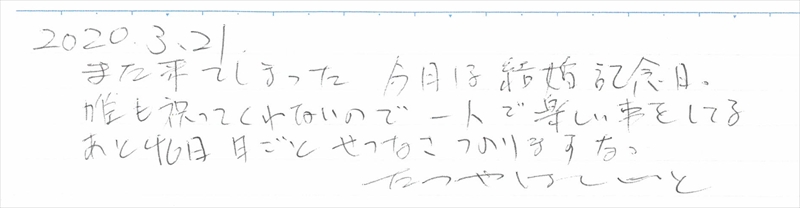 2020.3.21.
また来てしまった 今日は結婚記念日。
誰も祝ってくれないので一人で楽しい事をしてる
あと46日 日ごと せつなさ つのりますな。
たつや